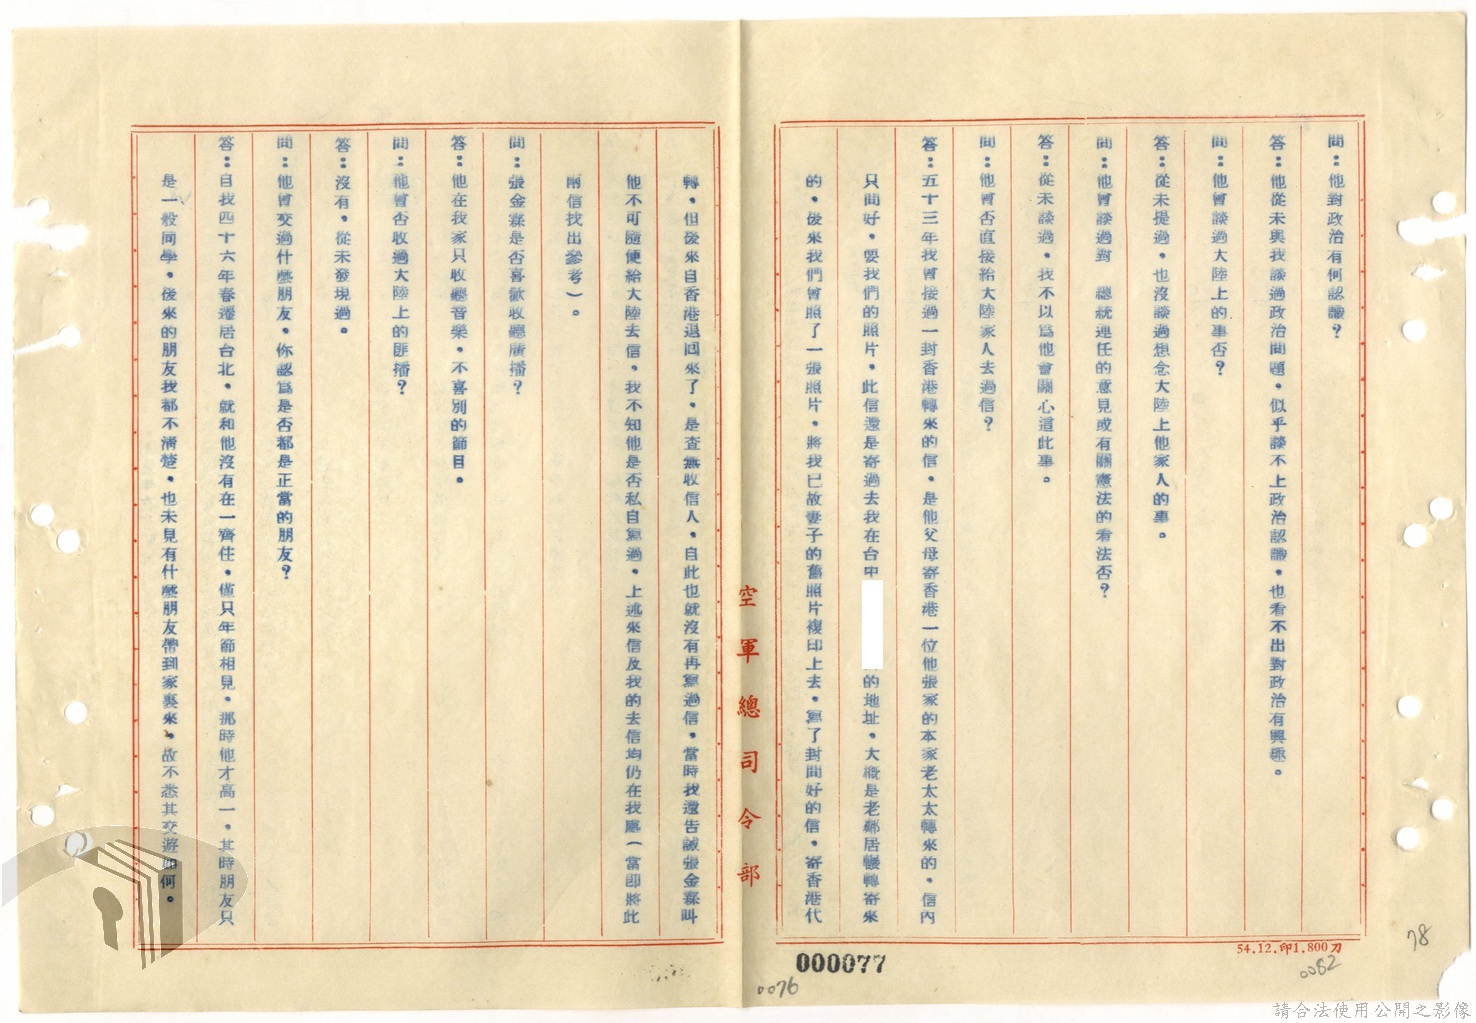 問：他對政治有何認識？
答：他從未與我談過政治問題，似乎談不上政治認識，也看不出對政治有興趣。
問：他曾談過大陸上的事否？
答：從未提過，也沒談過想念大陸上他家人的事。
問：他曾談過對　總統就連任的意見或有關憲法的看法否？
答：從未談過，我不以為他會關心這此事。
問：他曾否直接給大陸家人去過信？
答：五十三年我曾接過一封香港轉來的信，是他父母寄香港一位他張家的本家老太太轉來的，信內
只問好，要我們的照片，此信還是寄過去我在台中　　的地址，大概是老鄰居輾轉寄來
的，後來我們曾照了一張照片，將我已故妻子的舊照片複印上去，寫了封問好的信，寄香港代
空軍總司令部
轉，但後來自香港退回來了，是查無收信人，自此也就沒有再寫過信，當時我還告誡張金霖叫
他不可隨便給大陸去信，我不知他是否私自寫過，上述來信及我的去信均仍在我處（當即將此
兩信找出參考）。
問：張金霖是否喜歡收聽廣播？
答：他在我家只收聽音樂，不喜別的節目。
問：他曾否收過大陸上的匪播？
答：沒有，從未發現過。
問：他曾交過什麼朋友，你認為是否都是正當的朋友？
答：自我四十六年春遷居台北，就和他沒有在一齊住，僅只年節相見，那時他才高一，其時朋友只
是一般同學，後來的朋友我都不清楚，也未見有什麼朋友帶到家裏來，故不悉其交遊如何。
54.12.印1.800刀
000077
0076
0082
78
請合法使用公開之影像